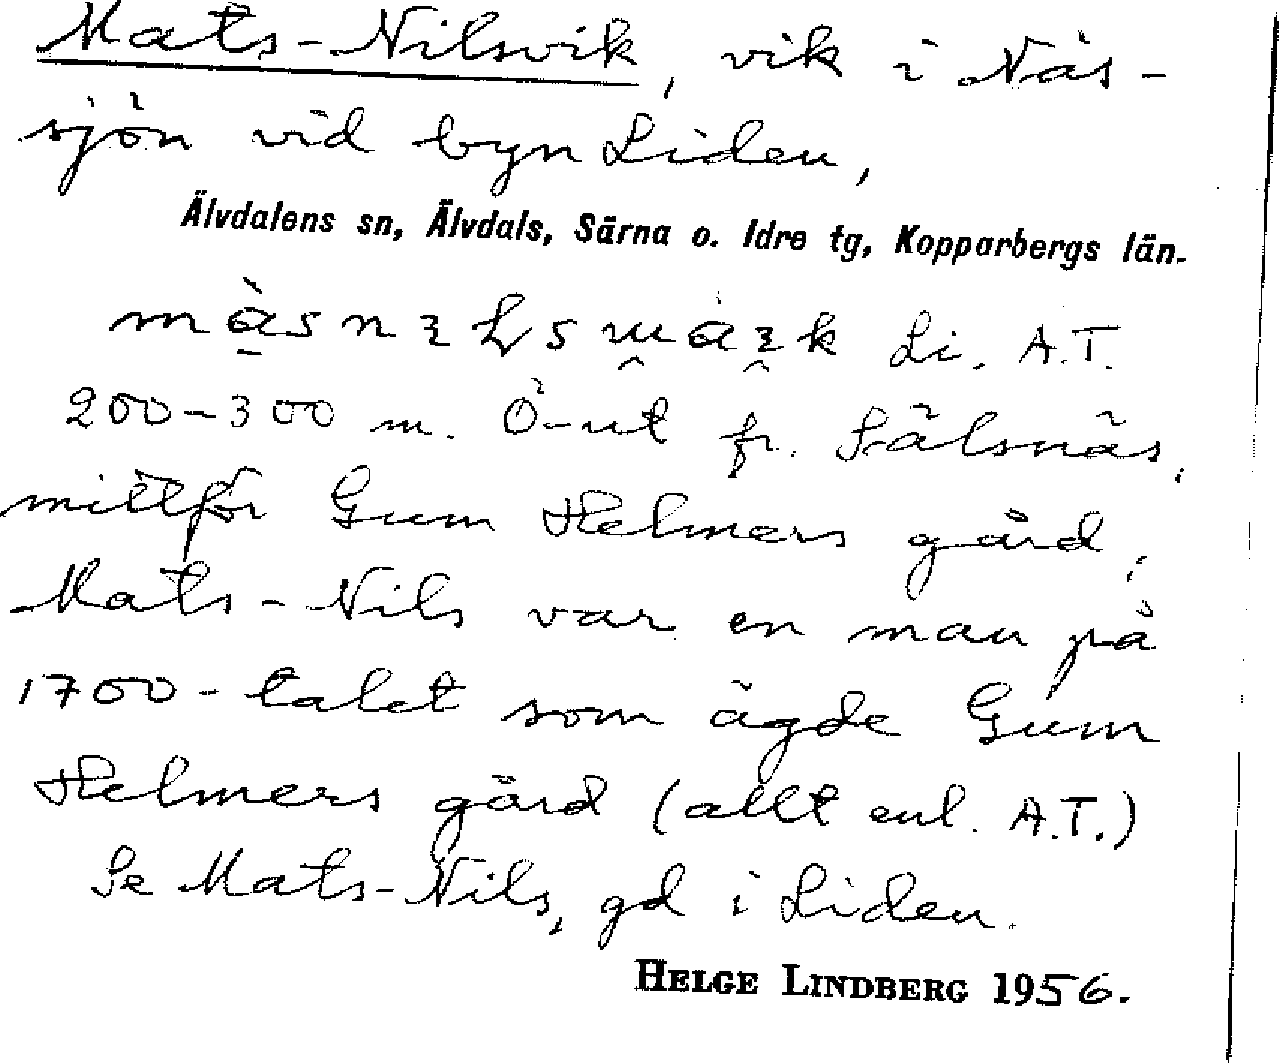 Mats-Nilsvik, vik i Näs-
sjön vid byn Liden,
Älvdalens sn, Älvdals, Särna o. Idre tg, Kopparbergs län.
Li. A.T.
200-300 m. Ö-ut fr. Sälsnäs,
mittför Gum Helmers gård;
Mats-Nils var en man på
1700-talet som ägde Gum
Helmers gård (allt enl. A.T.)
Se Mats-Nils, gd i Liden.
HELGE LINDBERG 1956.